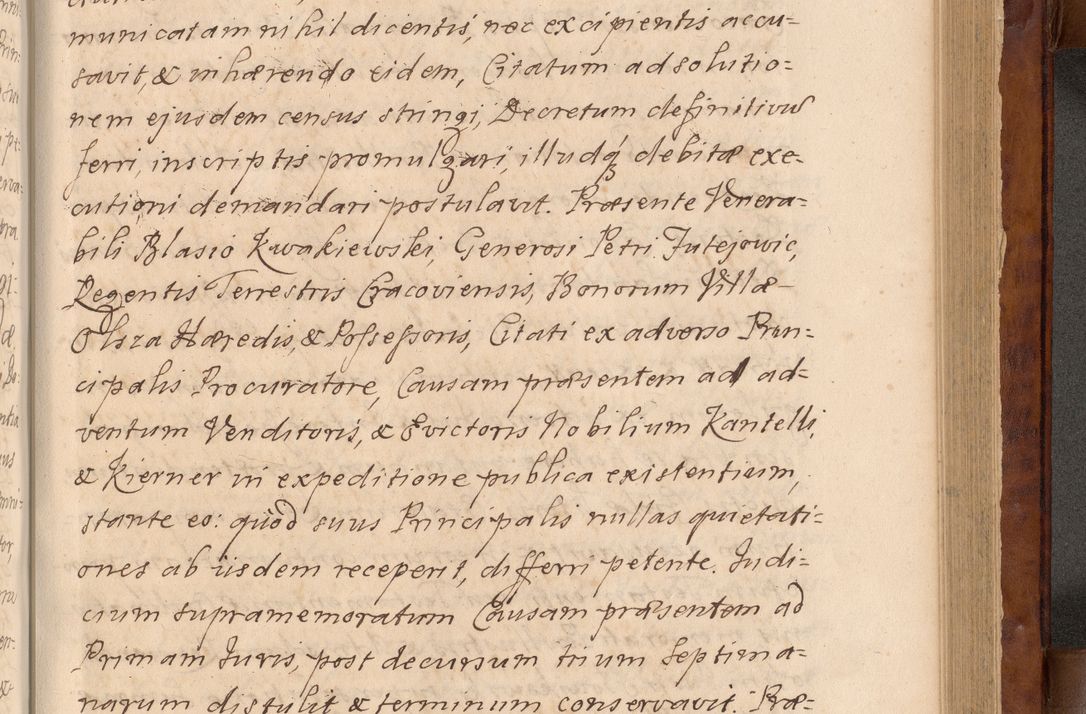 municatam nihil dicentis, nec excipientis accu=
savit, & inhærendo eidem, Citatum ad solutio=
nem ejusdem census stringi, Decretum definitivũ
ferri, inscriptis promulgari, illudq́ debitæ exe=
cutioni demandari postulavit. Præsente Venera=
bili Blasio Kwakiewski, Generosi Petri Jutejowic,
Regentis Terrestris Cracoviensis, Bonorum Villæ
Olsza Hæredis, & Possessoris, Citati ex adverso Prin=
cipalis Procuratore, Causam præsentem ad ad=
ventum Venditoris, & Evictoris Nobilium Kantelli,
& Kierner in expeditione publica existentium,
stante eo: quod suus Principalis nullas quietati=
ones ab iisdem receperit, differri petente. Judi=
cium supramemoratum Causam præsentem ad
Primam Juris, post decursum trium Septima=
narum distulit & terminum conservavit. Præ=